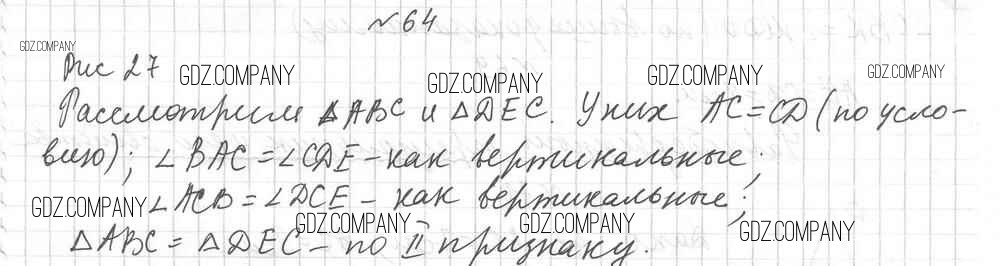 № 64
GDZ.COMPANY
Рис 27 GDZ.COMPANY GDZ.COMPANY GDZ.COMPANY GDZ.COMPANY
Рассмотрим ΔABC и ΔDEC. У них AC=CD (по усло-
вию); ∠BAC=∠CDE – как вертикальные;
GDZ.COMPANY ∠ACB=∠DCE – как вертикальные;
GDZ.COMPANY GDZ.COMPANY GDZ.COMPANY
ΔABC = ΔDEC – по II признаку.